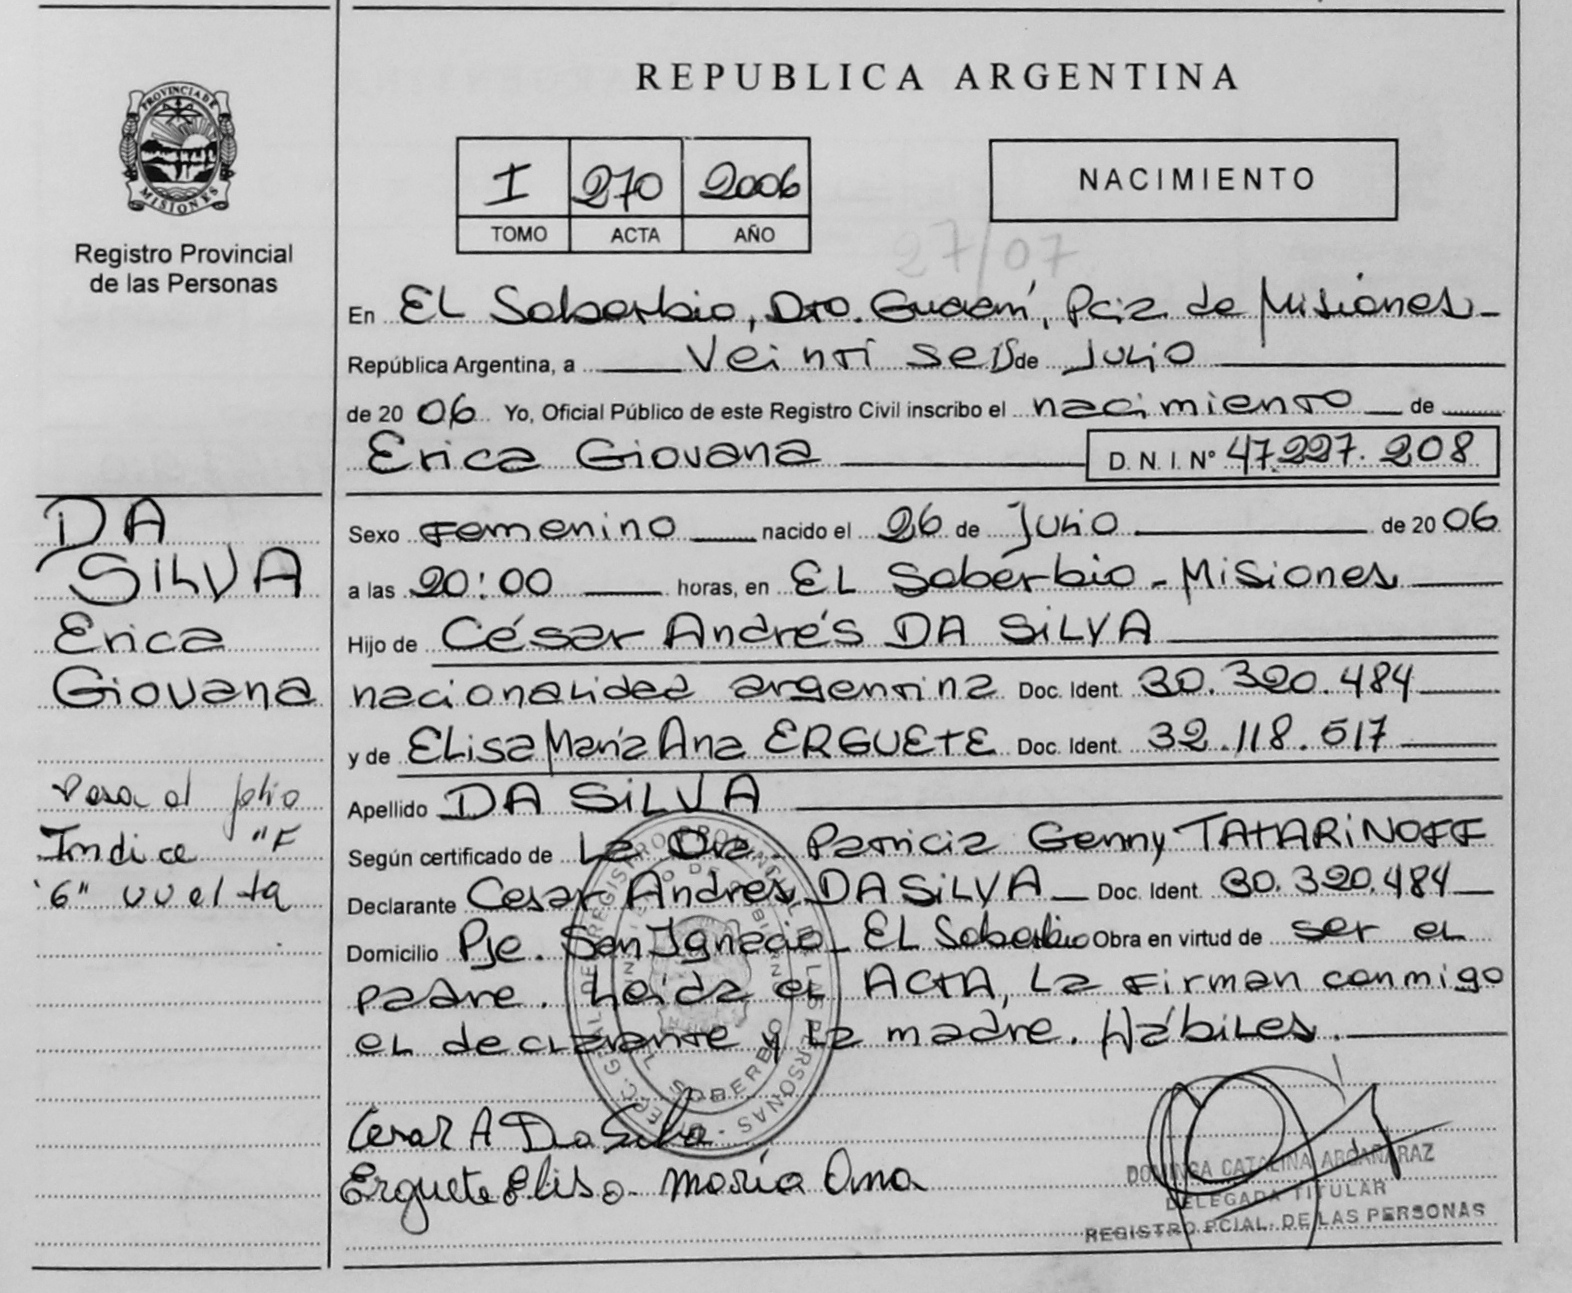 PROVINCIA DE
MISIONES
Registro Provincial
de las Personas
REPUBLICA ARGENTINA
I 270 2006
TOMO ACTA AÑO
NACIMIENTO
27/07
En EL Soberbio, Dto. Guaraní, Pcia de Misiones.-
República Argentina, a Veintiseis de Julio
de 2006 Yo, Oficial Público de este Registro Civil inscribo el nacimiento de
Erica Giovana D. N. I. N° 47.227.208
DA
SiLVA
Erica
Giovana
Pasa al folio
Indice "F
"6" vuelta
Sexo Femenino nacido el 26 de Julio de 2006
a las 20:00 horas, en EL Soberbio - Misiones
Hijo de César Andrés DA SiLVA
nacionalidad argentina Doc. Ident. 30.320.484
y de ELisa María Ana ERGUETE Doc. Ident. 32.118.517
Apellido DA SiLVA
Según certificado de La Dra. Patricia Genny TATARiNOFF
Declarante Cesar Andres DA SiLVA Doc. Ident. 30.320.484
Domicilio Pje. San Ignacio - EL Soberbio Obra en virtud de ser el
padre. Leida el ACTA, La Firman conmigo
el declarante y La madre. HábiLes.
REGISTRO PROVINCIAL DE LAS PERSONAS
EL SOBERBIO
Cesar A Da Silva
Erguete Elisa María Ana
DOMINGA CATALINA ARGAÑARAZ
DELEGADA TITULAR
REGISTRO PCIAL. DE LAS PERSONAS